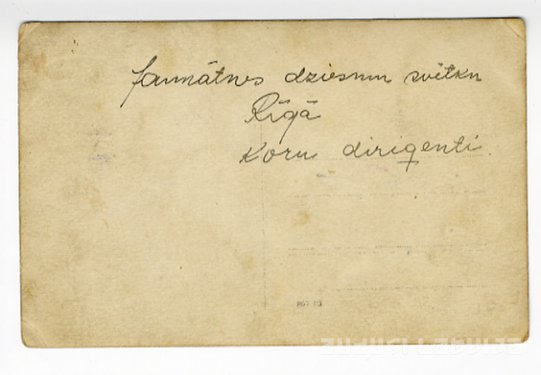 Jaunātnes dziesmu svētku
Rīgā
Koru diriģenti